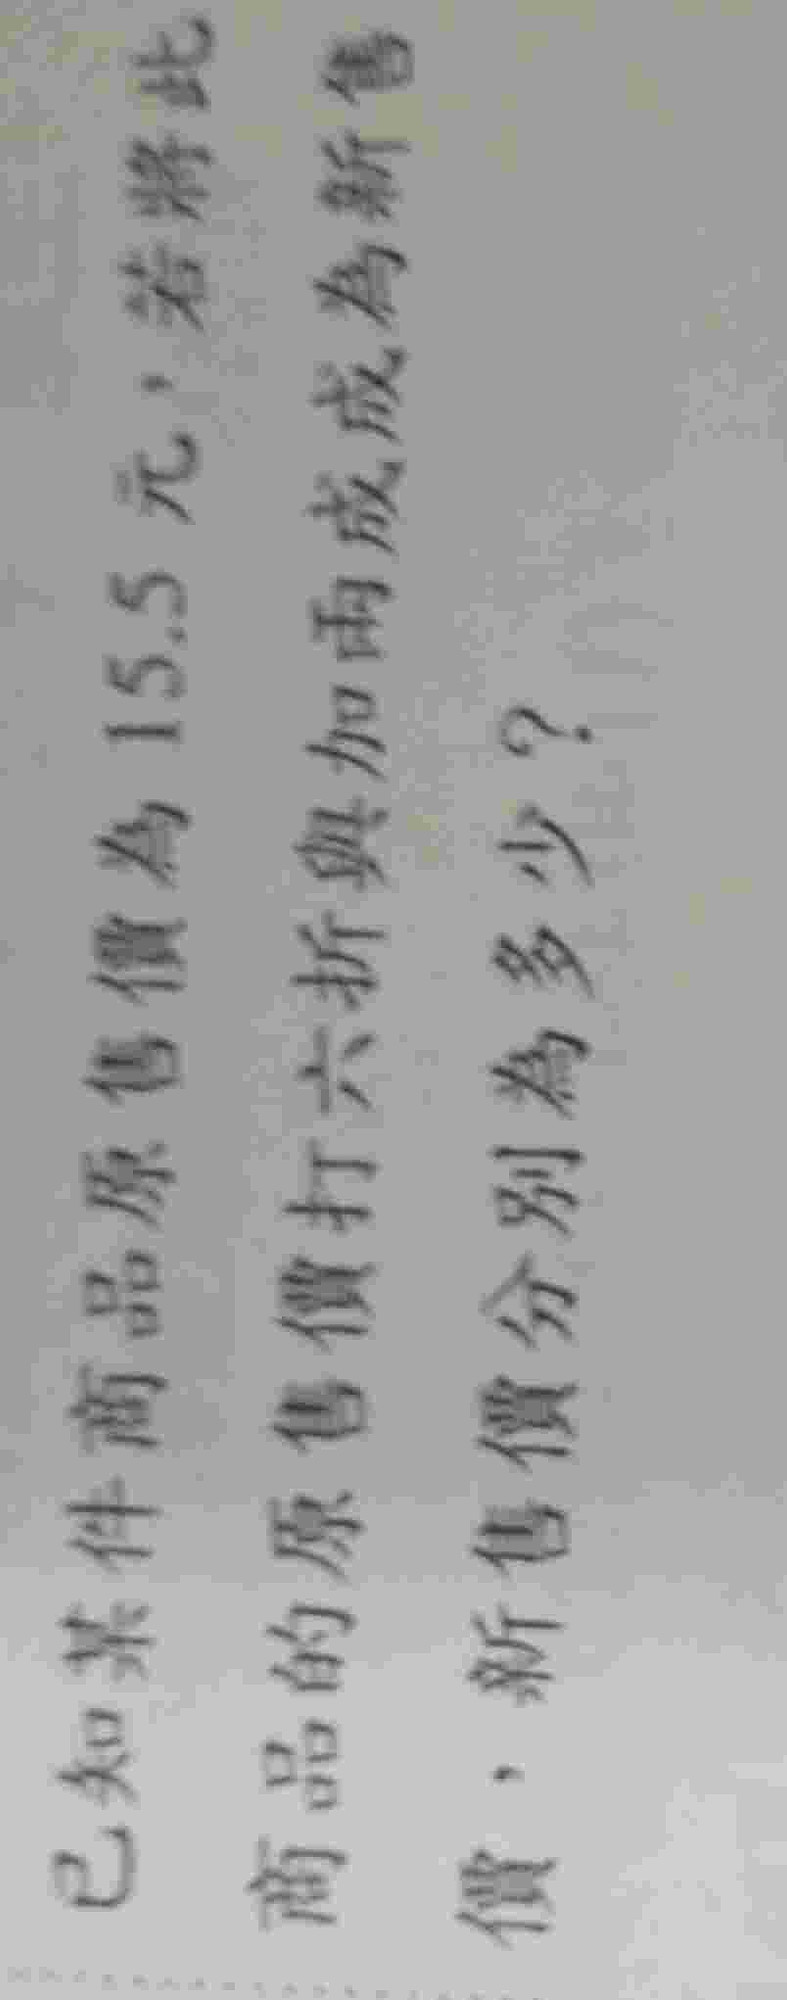 已知某件商品原售價為15.5元，若將此
商品的原售價打六折與加兩成成為新售
價，新售價分別為多少？